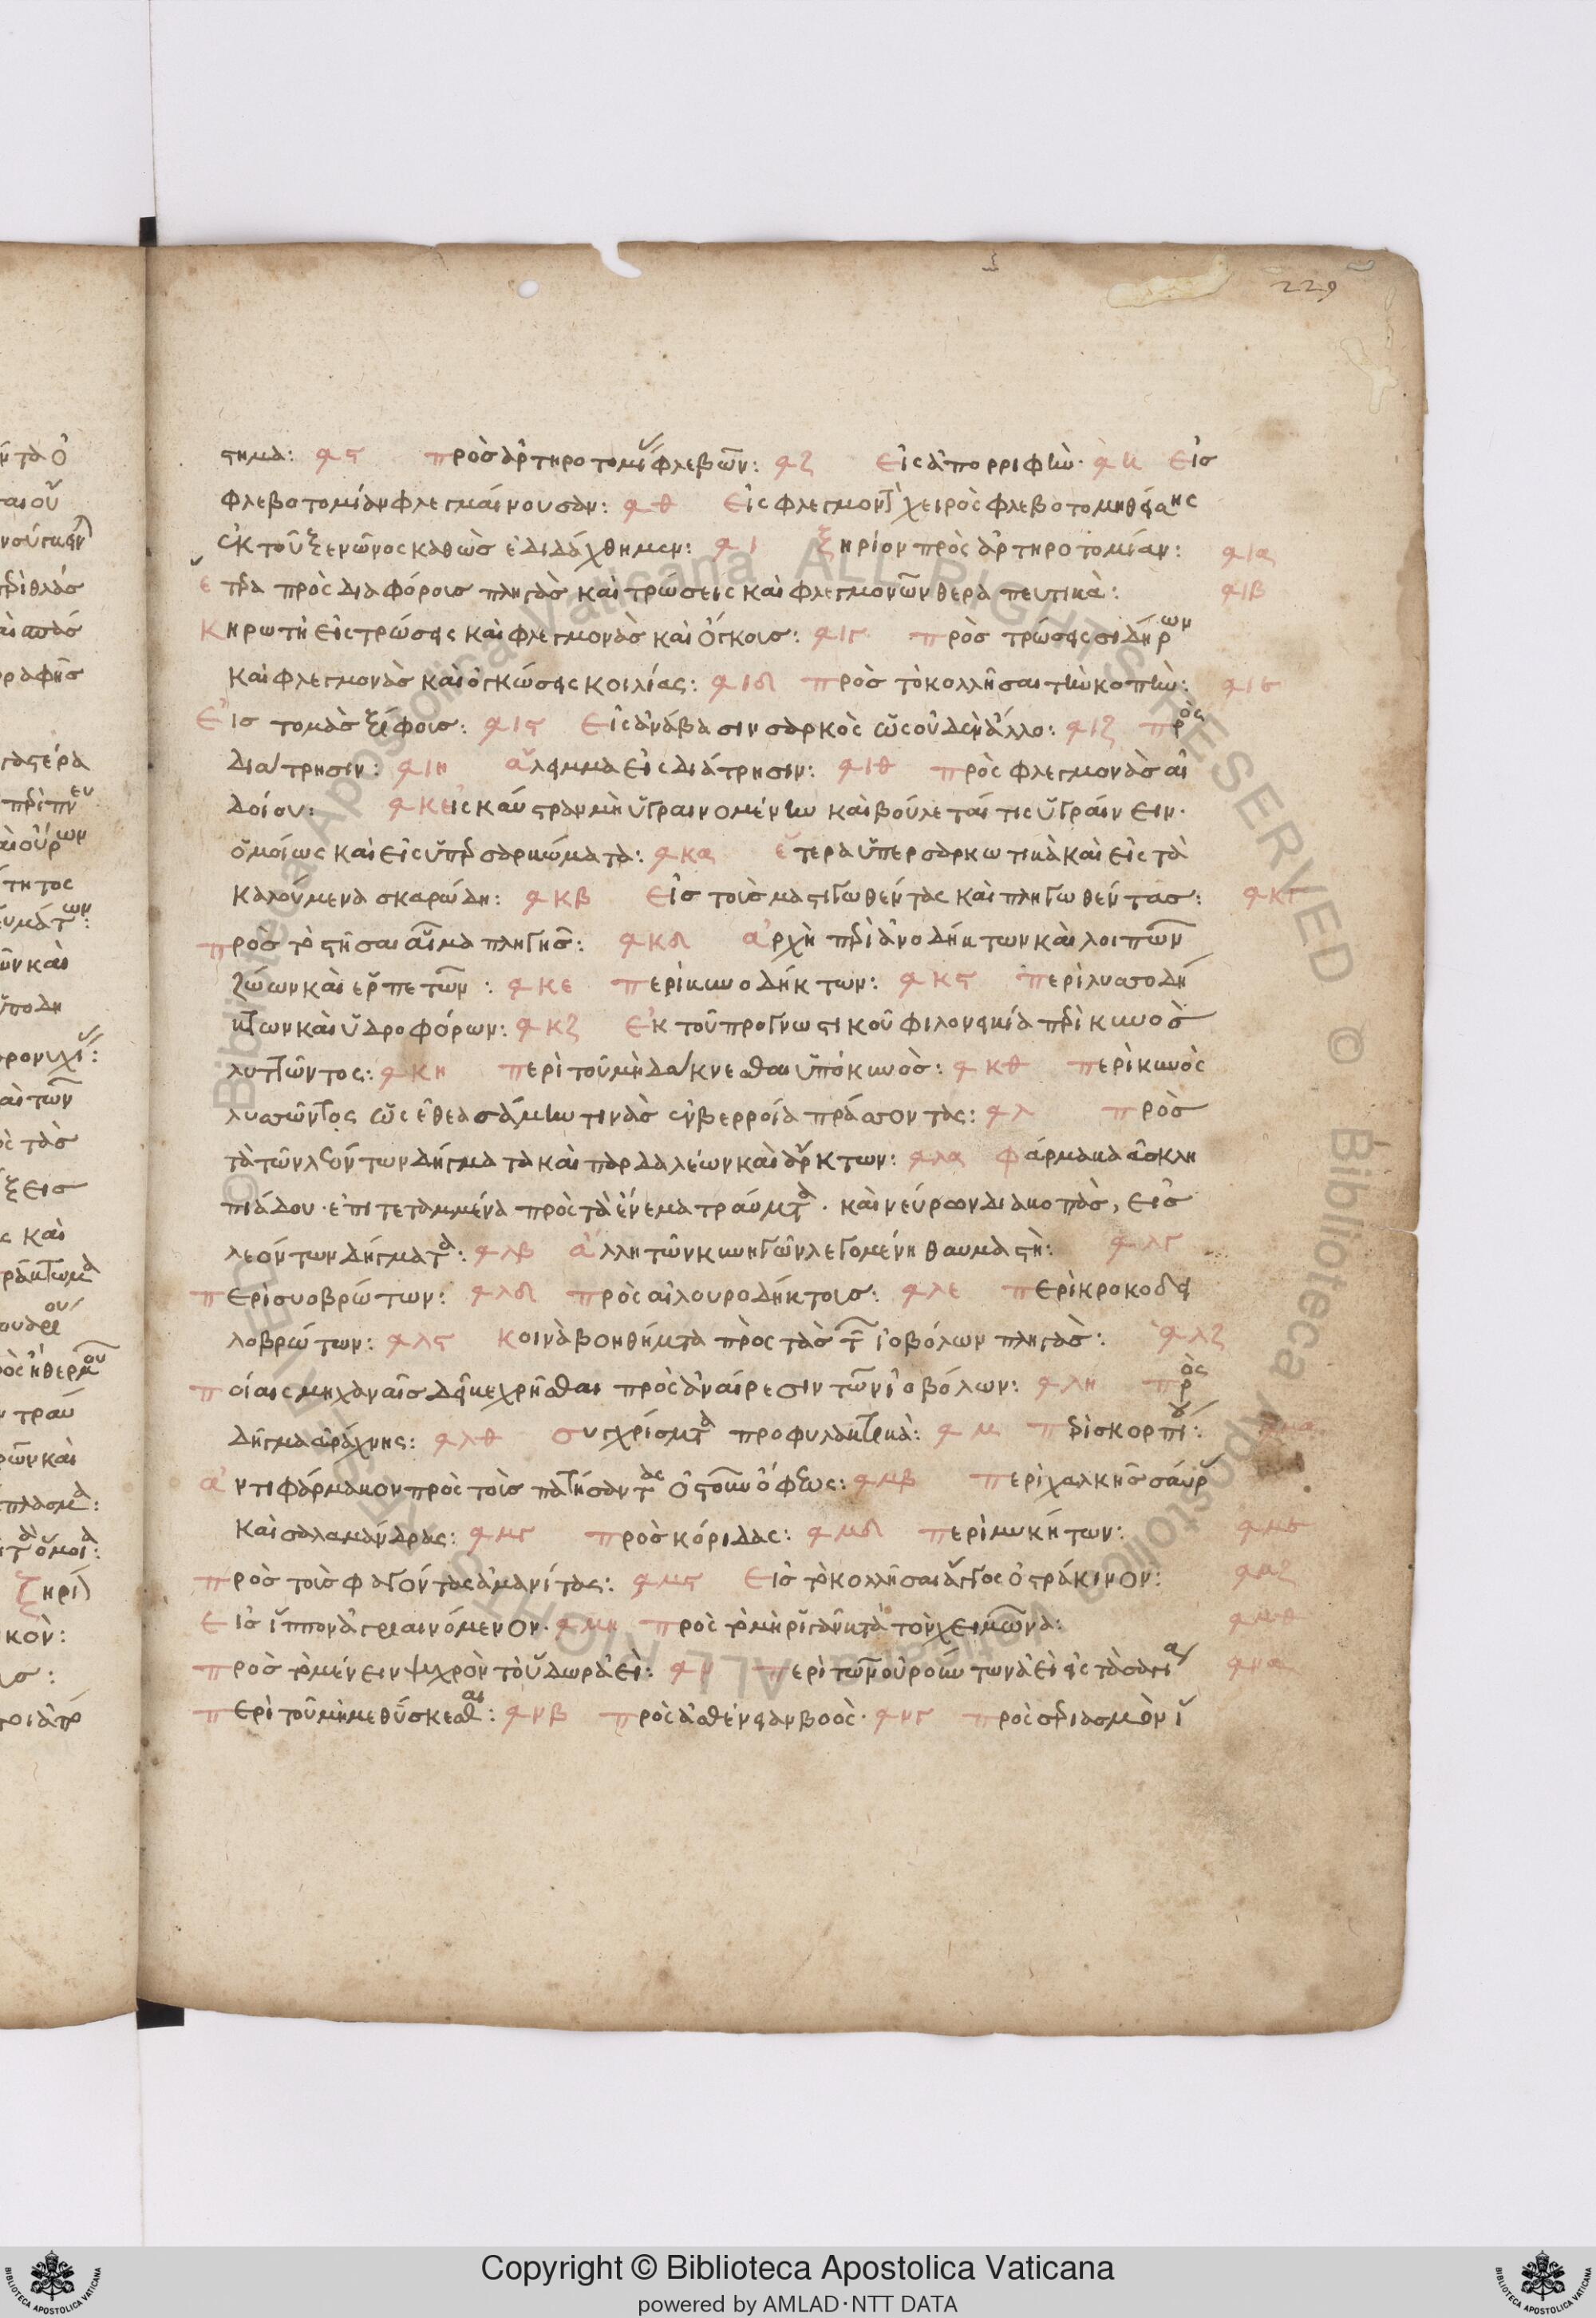 229
στημα: φϛ πρὸς ἀρτηροτομί φλεβῶν: φζ εἰς ἀπορριφὴν· φη εἰσ
φλεβοτομίαν φλεγμαίνουσαν: φθ εἰς φλεγμονὴ χειρὸς φλεβοτομηθείσης
ἐκ τοῦ ξενῶνος καθὼς ἐδιδάχθημεν: φι ξηρίον πρὸς ἀρτηροτομίαν: φια
ἕτερα πρὸς διαφόρους πληγὰς καὶ τρώσεις καὶ φλεγμονῶν θεραπευτικὰ: φιβ
κηρωτὴ εἰς τρώσεις καὶ φλεγμονὰς καὶ ὄγκους: φιγ πρὸς τρώσεις σιδήρων
καὶ φλεγμονὰς καὶ ὀγκώσεις κοιλίας: φιδ πρὸς τὸ κολλῆσαι τὴν κοπὴν: φιε
εἰσ τομὰς ξίφους: φιϛ εἰς ἀνάβασιν σαρκὸς ὡς οὐδὲν ἄλλο: φιζ πρὸς
διάτρησιν: φιη ἄλειμμα εἰς διάτρησιν: φιθ πρὸς φλεγμονὰς αἰ
δοίου: φκ εἰς καύστραν μὴ ὑγραινομένην καὶ βούλεταί τις ὑγραίνειν·
ὁμοίως καὶ εἰς ὑπερσαρκώματα: φκα ἕτερα ὑπερσαρκωτικὰ καὶ εἰς τὰ
καλούμενα σκαρώδη: φκβ εἰς τοὺς μαστιγωθέντας καὶ πληγωθέντας: φκγ
πρὸς τὸ στῆσαι αἷμα πληγῆς: φκδ ἀρχὴ περὶ ἀνοδήκτων καὶ λοιπῶν
ζώων καὶ ἑρπετῶν: φκε περὶ κυνοδήκτων: φκϛ περὶ λυσσοδή
κτων καὶ ὑδροφόρων: φκζ ἐκ τοῦ προγνωστικοῦ φιλονεικία περὶ κυνὸς
λυττῶντος: φκη περὶ τοῦ μὴ δάκνεσθαι ὑπὸ κυνὸς: φκθ περὶ κυνὸς
λυσσῶντος ὡς ἐθεασάμην τινὰς ἐν βερροία πράσσοντας: φλ πρὸς
τὰ τῶν λεόντων δήγματα καὶ παρδαλέων καὶ ἄρκτων: φλα φάρμακα ἀσκλη
πιάδου· ἐπιτεταμμένα πρὸς τὰ ἔνεμα τραύματα· καὶ νεύρων διακοπὰς, εἰς
λεόντων δήγματα: φλβ ἄλλη τῶν κυνηγῶν λεγομένη θαυμαστὴ: φλγ
περὶ συοβρώτων: φλδ πρὸς αἰλουροδήκτους: φλε περὶ κροκοδει
λοβρώτων: φλϛ κοινὰ βοηθήματα πρὸς τὰς τῶν ἰοβόλων πληγὰς: φλζ
ποίαις μηχαναῖς δεῖ κεχρῆσθαι πρὸς ἀναίρεσιν τῶν ἰοβόλων: φλη πρὸς
δῆγμα ἀράχνης: φλθ συγχρίσματα προφυλακτικὰ: φμ περὶ σκορπίου: φμα
ἀντιφάρμακον πρὸς τοὺς πατήσαντας ὀστοῦν ὄφεως: φμβ περὶ χαλκῆς σαύρ
καὶ σαλαμάνδρας: φμγ πρὸς κόριδας: φμδ περὶ μυκήτων: φμε
πρὸς τοὺς φαγόντας ἀμανίτας: φμϛ εἰς τὸ κολλῆσαι ἄγγος ὀστράκινον: φμζ
εἰς ἵππον ἀγριαινόμενον· φμη πρὸς τὸ μὴ ῥιγᾶν κατὰ τὸν χειμῶνα: φμθ
πρὸς τὸ μένειν ψυχρὸν τὸ ὕδωρ ἀεὶ: φν περὶ τῶν οὐρούντων ἀεὶ εἰς τὰ φνα
περὶ τοῦ μὴ μεθύσκεσθαι: φνβ πρὸς ἀσθένειαν βοὸς· φνγ πρὸς
Copyright © Biblioteca Apostolica Vaticana
powered by AMLAD·NTT DATA